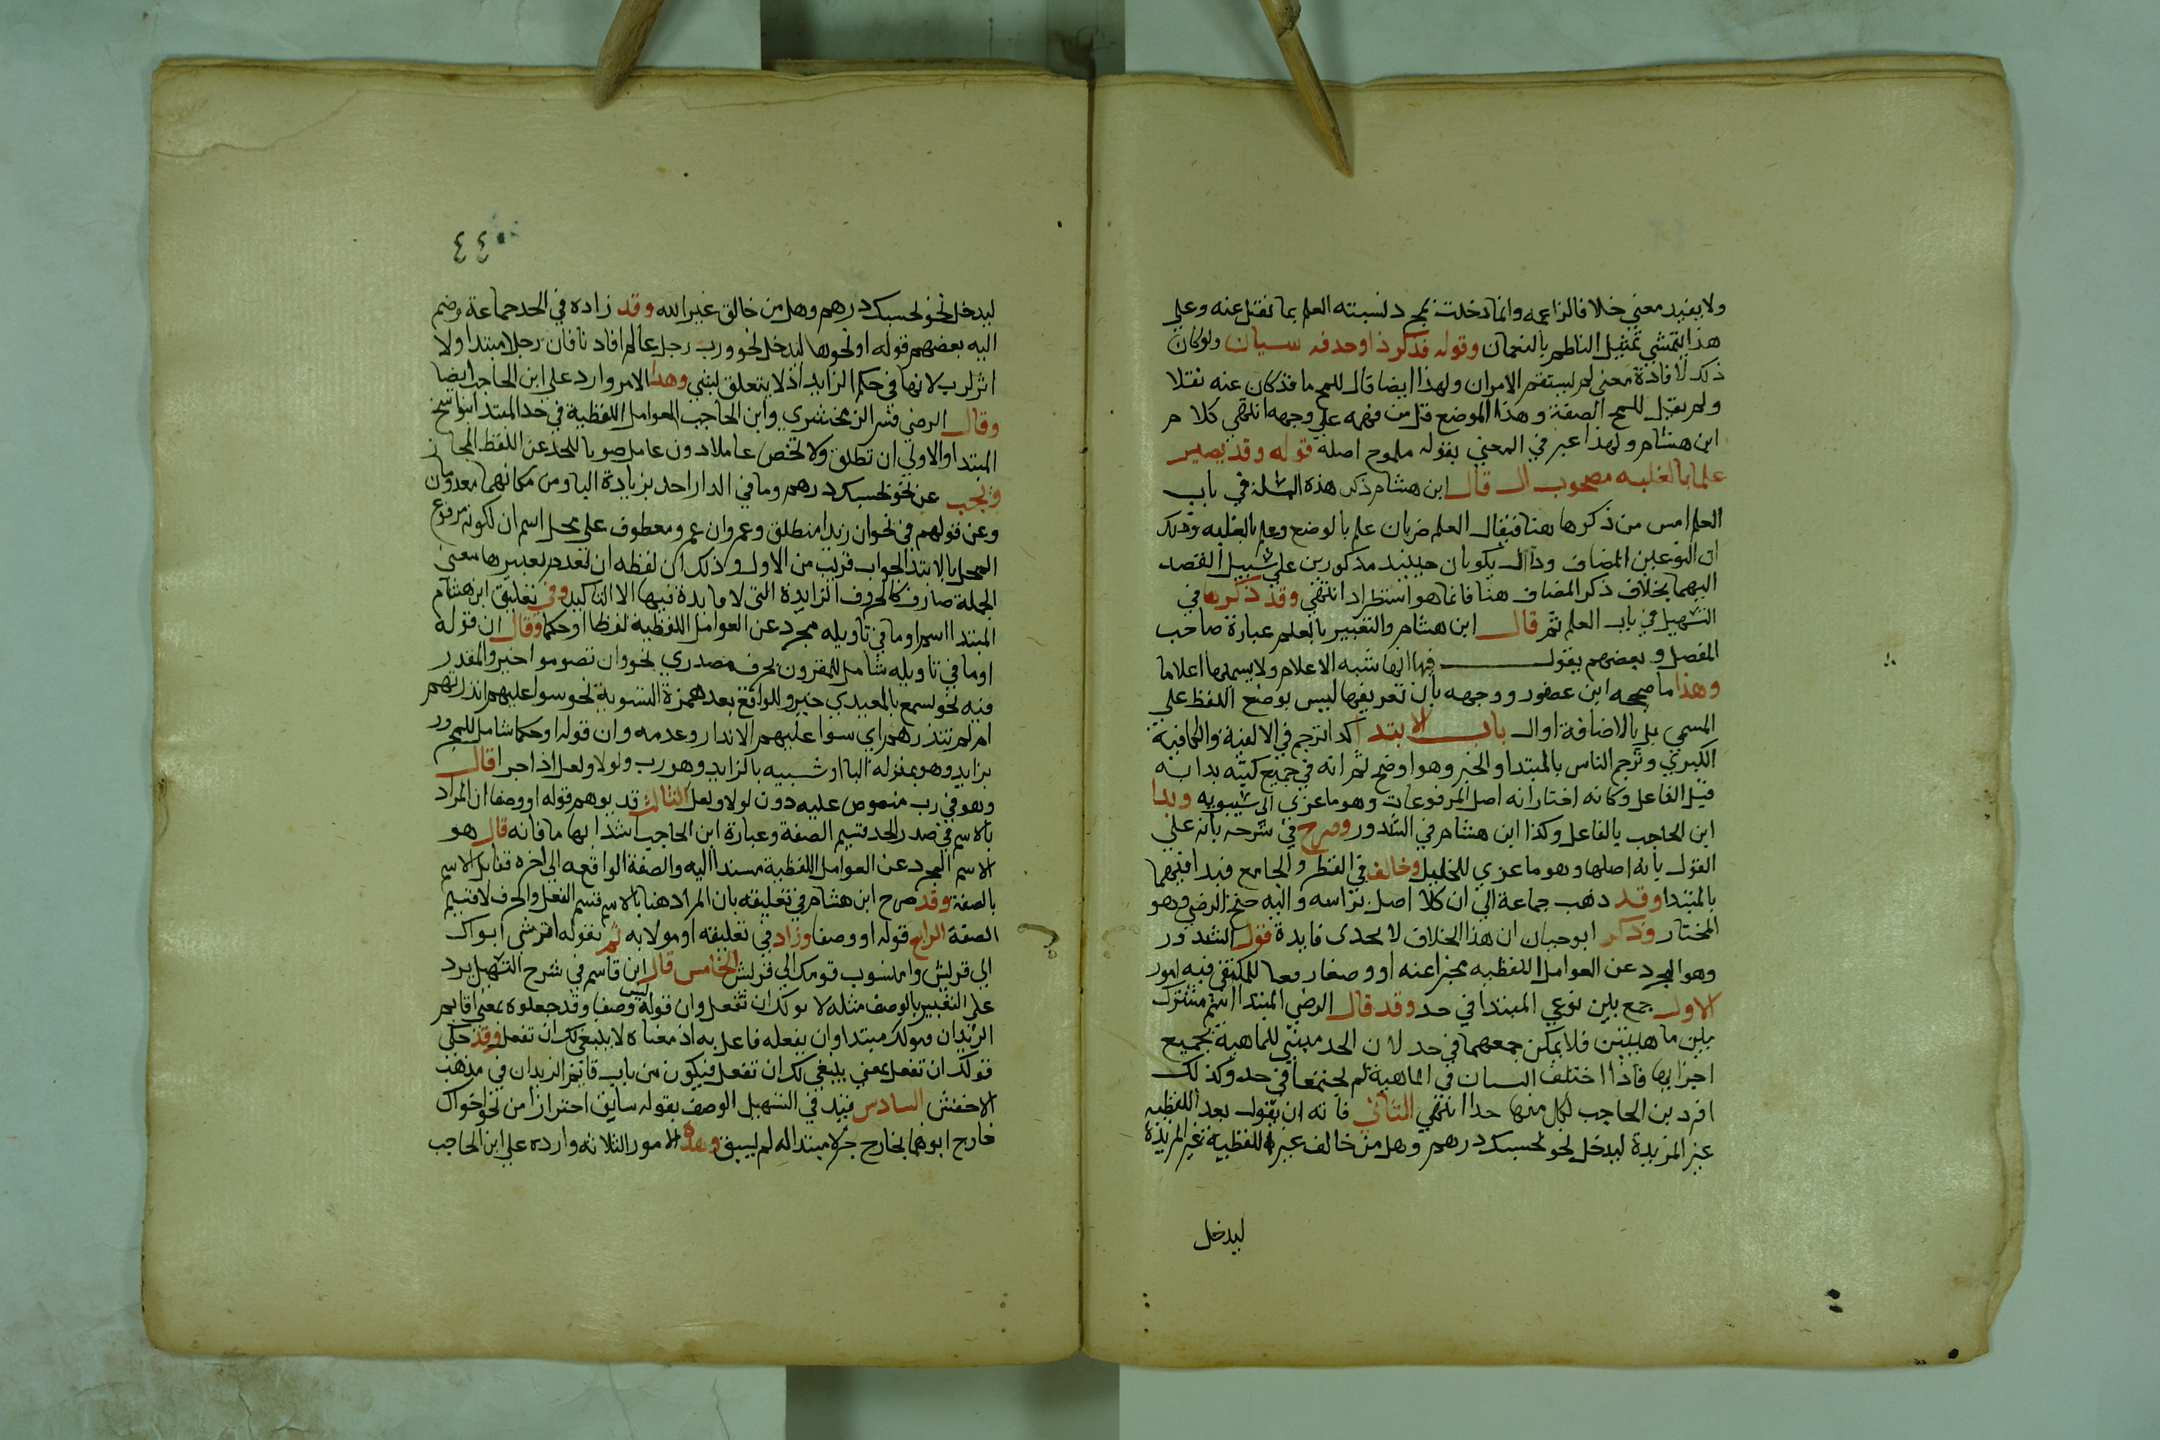 ولا يفيد معنى خلافا لزاعمه وانما دخلت بمجرد نسبته العلم بما نقل عنه وعلى
هذا التمشي تمثيل الناظم بالنعمان وقوله فذكر ذا وحدفه سيان ولو كان
ذلك لافادة معنى لم يستقم الامران ولهذا ايضا قال للمح ما قد كان عنه نقلا
ولم يقل للمح الصفة وهذا الموضع قل من فهمه على وجهه انتهى كلام
ابن هشام ولهذا عبر في المعنى بقوله ملموح اصله قوله وقد يصير
علما بالغلبه مصحوب ال قال ابن هشام ذكر هذه المسلة في باب
العلم امس من ذكرها هنا فيقال العلم ضربان علم بالوضع وعلم بالغلبه وذلك
ان النوعين المضاف وذال يكونان حينيذ مذكورين على سبيل القصد
اليهما بخلاف ذكر المضاف هنا فانما هو استطراد انتهى وقد ذكرها في
التسهيل في باب العلم ثم قال ابن هشام والتعبير بالعلم عبارة صاحب
المفصل وبعضهم يقول فيها انها شبه الاعلام ولا يسميها اعلاما
وهذا ما صححه ابن عصفور ووجهه بان تعريفها ليس بوضع اللفظ على
المسمي بل بالاضافة او ال باب الابتدا كذا ترجم في الالفية والكافية
الكبري وترجم الناس بالمبتدا والخبر وهو اوضح ثم انه في جميع كتبه بدا به
قبل الفاعل وكانه اختار انه اصل المرفوعات وهو ما عزي الى سيبويه وبدا
ابن الحاجب بالفاعل وكذا ابن هشام في الشدور وصرح في شرحه بانه على
القول بانه اصلها وهو ما عزي للخليل وخالف في القطر والجامع فبدا فيهما
بالمبتدا وقد ذهب جماعة الى ان كلا اصل براسه واليه جنح الرضي وهو
المختار وذكر ابو حيان ان هذا الخلاف لا يجدى فايدة قول الشدور
وهو المجرد عن العوامل اللفظيه مخبرا عنه او وصفا رفعا لمكتفى فيه امور
الاول جمع بين نوعي المبتدا في حد وقد قال الرضي المبتدا اسم مشترك
بين ماهيتين فلا يمكن جمعهما في حد لان الحد مبين للماهية بجميع
اجزايها فاذا اختلف الشيان في الماهية لم يجتمعا في حد وكذلك
افرد ابن الحاجب لكل منها حدا انتهى الثاني فاته ان يقول بعد اللفظيه
غير المزيدة ليدخل نحو بحسبك درهم وهل من خالق غير اللفظية غير المزيدة
ليدخل
٤٤
ليدخل نحو بحسبك درهم وهل من خالق غير الله وقد زاده في الحد جماعة وضم
اليه بعضهم قوله او نحوها ليدخل نحو ورب رجل عالم افادنا فان رجلا مبتدا ولا
اثر لرب لانها في حكم الزايد اذ لا يتعلق بشي وهذا الامر وارد على ابن الحاجب ايضا
وقال الرضي فسر الزمخشري وابن الحاجب العوامل اللفظية في حد المبتدا بنواسخ
المبتدا والاولى ان تطلق ولا تخص عاملا دون عامل صونا للحد عن اللفظ المجاز
ويجب عن نحو بحسبك درهم وما في الدار احد بزيادة الباء ومن فكانهما معدومان
وعن قولهم في نحو ان زيدا منطلق وعمرو ان عمرو معطوف على محل اسم ان لكونه مرفوع
المحل بالابتدا الجواب قريب من الاول وذلك ان لفظه ان لعدم تغييرها معنى
الجملة صارت كالحروف الزايدة التي لا فايدة فيها الا التاكيد وفي تعليق ابن هشام
المبتدا اسم او ما في تاويله مجرد عن العوامل اللفظية لفظا او حكما وقال ان قوله
او ما في تاويله شامل للمقرون بحرف مصدري نحو وان تصوموا خير والمقدر
فيه نحو تسمع بالمعيدي خير والواقع بعد همزة التسوية نحو سوا عليهم انذرتهم
ام لم تنذرهم اي سوا عليهم الانذار وعدمه وان قوله او حكما شامل للمجرور
بزايد وهو بمنزله البا او شبيه بالزايد وهو رب ولولا ولعل اذا جرا قال
وهو في رب منصوص عليه دون لولا ولعل الثالث قد يوهم قوله او وصفا ان المراد
بالاسم في صدر الحد قسيم الصفة وعبارة ابن الحاجب اشد ايهاما فانه قال هو
الاسم المجرد عن العوامل اللفظية مسندا اليه والصفة الواقعه الى اخره فقابل الاسم
بالصفة وقد صرح ابن هشام في تعليقه بان المراد هنا بالاسم قسيم الفعل والحرف لا قسيم
الصفة الرابع قوله او وصفا وزاد في تعليقه او مولا به ثم بقوله اقرشي ابواك
اي قرشي وامنسوب قومك الى قريش الخامس قال ابن قاسم في شرح التسهيل يرد
على التعبير بالوصف مثله لا نولك ان تفعل وان قوله ليس وصفا وقد جعلوه بمعنى اقايم
الزيدان فنولك مبتدا وان يفعله فاعل به اذ معناه لا ينبغي لك ان تفعل وقد حكى
قولك ان تفعل بمعنى ينبغي لك ان تفعل فيكون من باب قايم الزيدان في مذهب
الاخفش السادس قيد في التسهيل الوصف بقوله سابق احترازا من نحو اخواك
خارج ابوهما فخارج جزؤه مبتدا له لم يسبق وهذه الامور الثلاثه وارده على ابن الحاجب